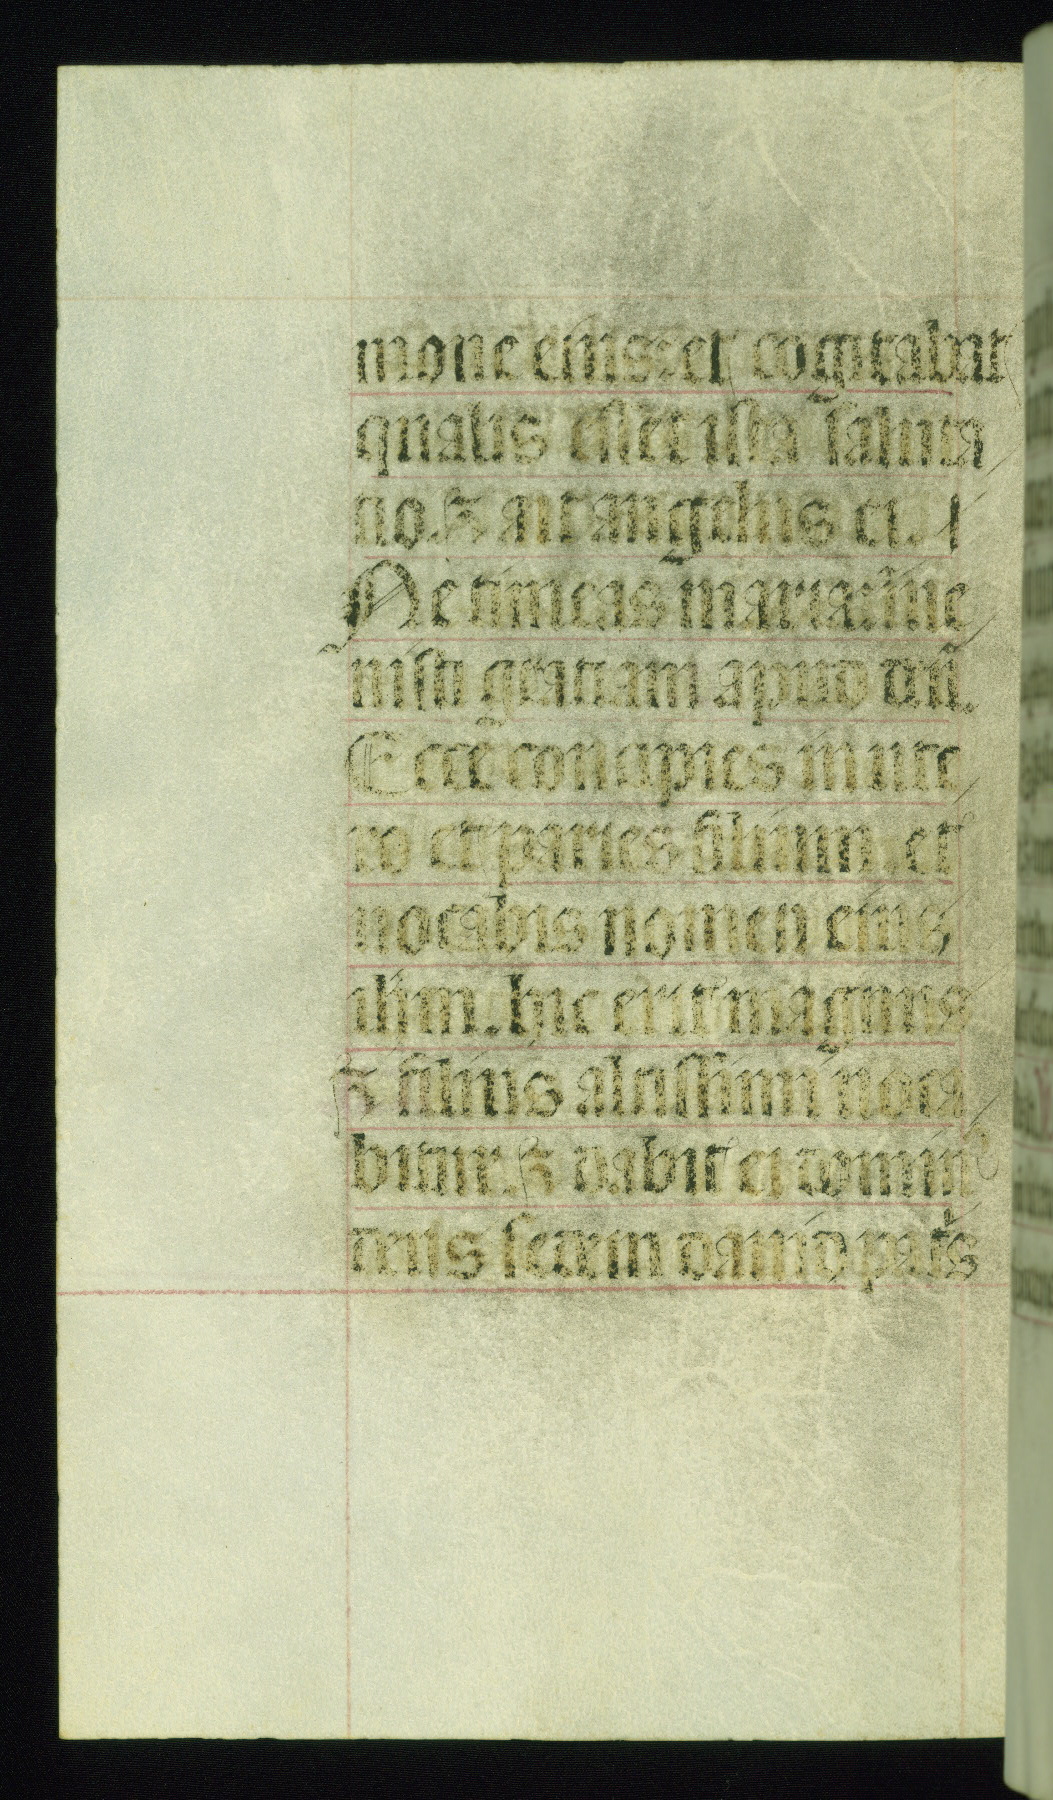 mone eius: et cogitabat
qualis esset ista saluta
tio. ⁊ ait angelus ei.
Ne timeas maria: inue
nisti gratiam apud dn̄.
Ecce concipies in ute
ro et paries filium. et
uocabis nomen eius
ihm. hic erit magnus
⁊ filius altissimi uoca
bitur. ⁊ dabit ei domin⁹
deus sedem dauid pat̄s